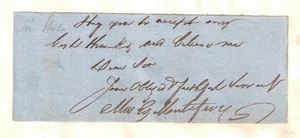 beg you to accept my
best thanks, and believe me
Dear Sir
Your Oblig'd & faithful Servant
Montefiore